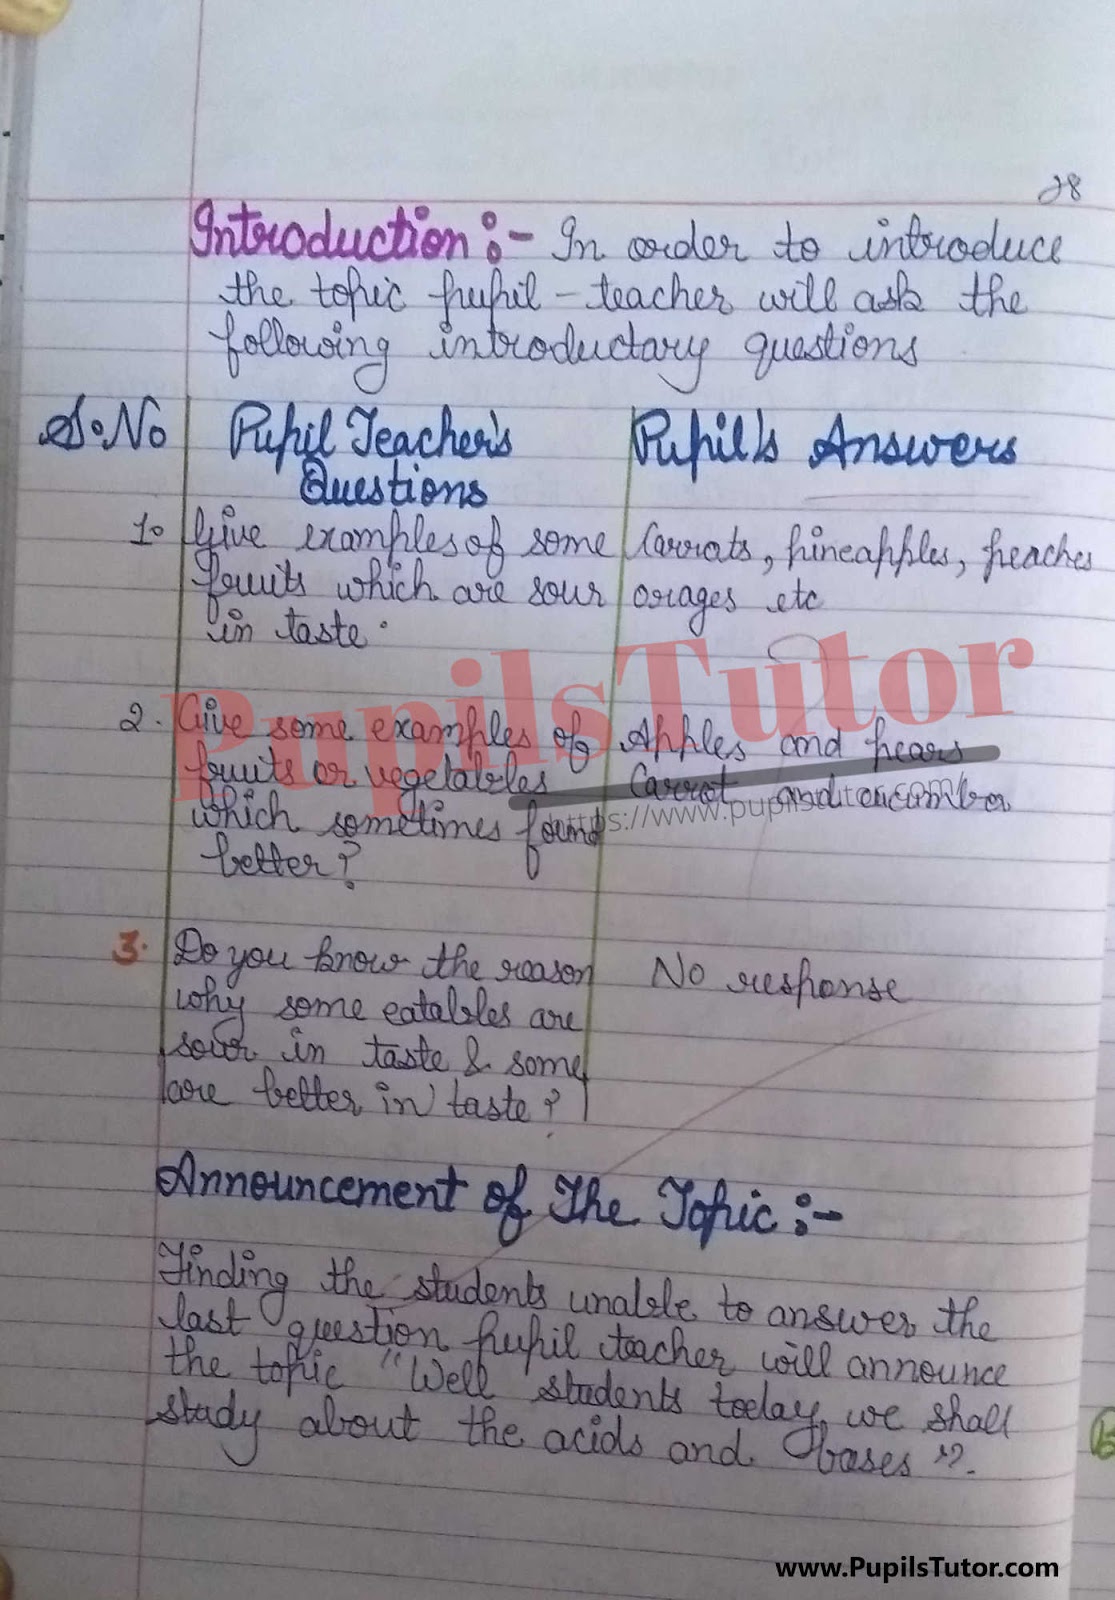 28
Introduction :- In order to introduce
the topic pupil - teacher will ask the
following introductary questions
S.No Pupil Teacher's Pupil's Answers
Questions
1. Give examples of some Carrats, pineapples, peaches
fruits which are sour orages etc
in taste.
PupilsTutor
2. Give some examples of Apples and pears
fruits or vegetables Carrot and cucumber
which sometimes found
https://www.pupilstutor.com/
better?
3. Do you know the reason No response
why some eatables are
sour in taste & some
are better in taste?
Announcement of The Topic :-
Finding the students unable to answer the
last question pupil teacher will announce
the topic "Well students today, we shall
study about the acids and bases".
www.PupilsTutor.com